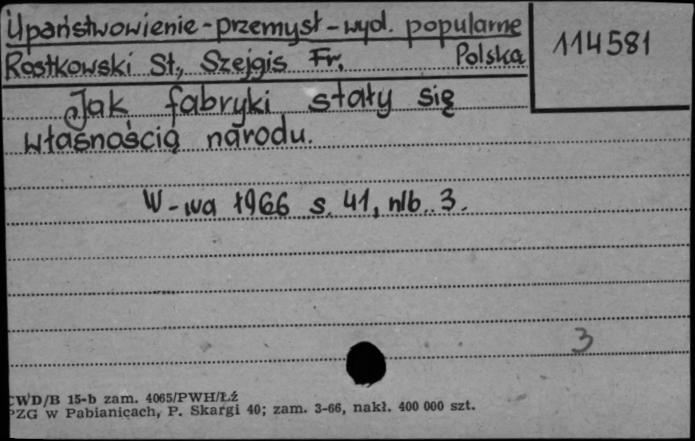 Upaństwowienie - przemysł - wyd. popularne
Rostkowski St., Szejgis Fr. Polska
114581
Jak fabryki stały się
własnością narodu.
W-wa 1966 s. 41, nlb. 3.
3
CWD/B 15-b zam. 4065/PWH/Łź
PZG w Pabianicach, P. Skargi 40; zam. 3-66, nakł. 400 000 szt.